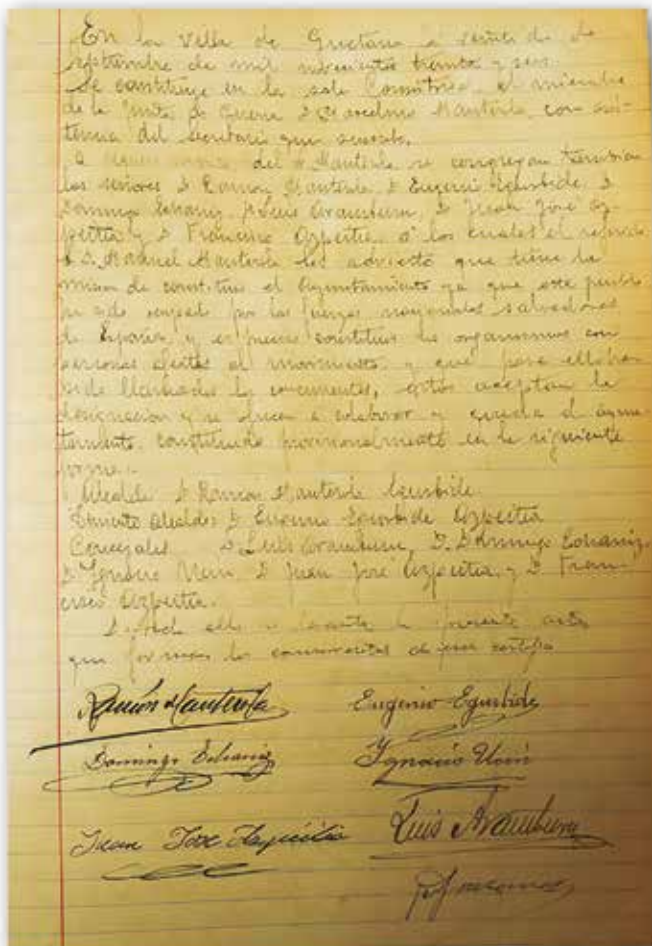 En la Villa de Guetaria a veinte de
septiembre de mil novecientos treinta y seis.
Se constituye en la sala Consistorial el miembro
de la Junta de Guerra D. Marcelino Manterola, con asis-
tencia del secretario que suscribe.
del Sr Manterola se congregan tambien
los señores D. Ramón Manterola D. Eugenio Egurbide, D.
Domingo Echaniz, D. Luis Aramburu, D. Juan José Az-
peitia y D. Francisco Azpeitia, a los cuales el
D. Manterola les advierte que tiene la
mision de constituir el Ayuntamiento ya que este pueblo
ha sido por las fuerzas nacionales salvadoras
de España, y es constituir los organismos con
personas afectas al movimiento y que para ello han
sido llamados los concurrentes, estos aceptan la
designacion y se a colaborar y queda el ayun-
tamiento constituido provisionalmente en la siguiente
forma:
Alcalde D. Ramón Manterola Egurbide
Teniente Alcalde D. Eugenio Egurbide Azpeitia
Concejales D. Luis Aramburu, D. Domingo Echaniz,
D. Ignacio Urcu, D. Juan José Azpeitia, y D. Fran-
cisco Azpeitia.
De todo ello se levanta la presente acta
que firman los de que certifico
Ramón Manterola Eugenio Egurbide
Domingo Echaniz Ignacio
Juan Jose Azpeitia Luis Aramburu